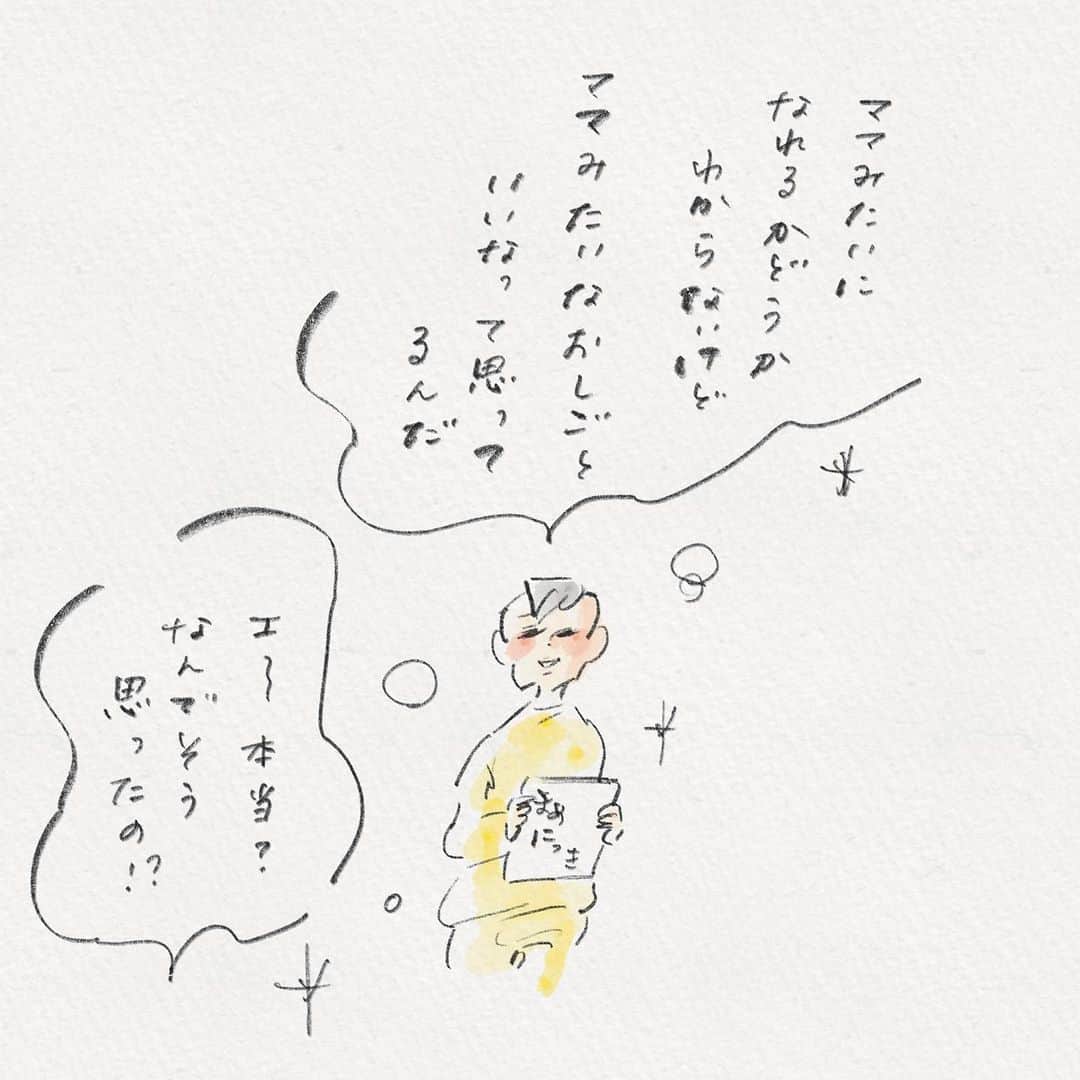 ママみたいに
なれるかどうか
わからないけど
ママみたいなおしごと
いいなって思って
るんだ
エ〜本当？
なんでそう
思ったの!?
まめ
にっき